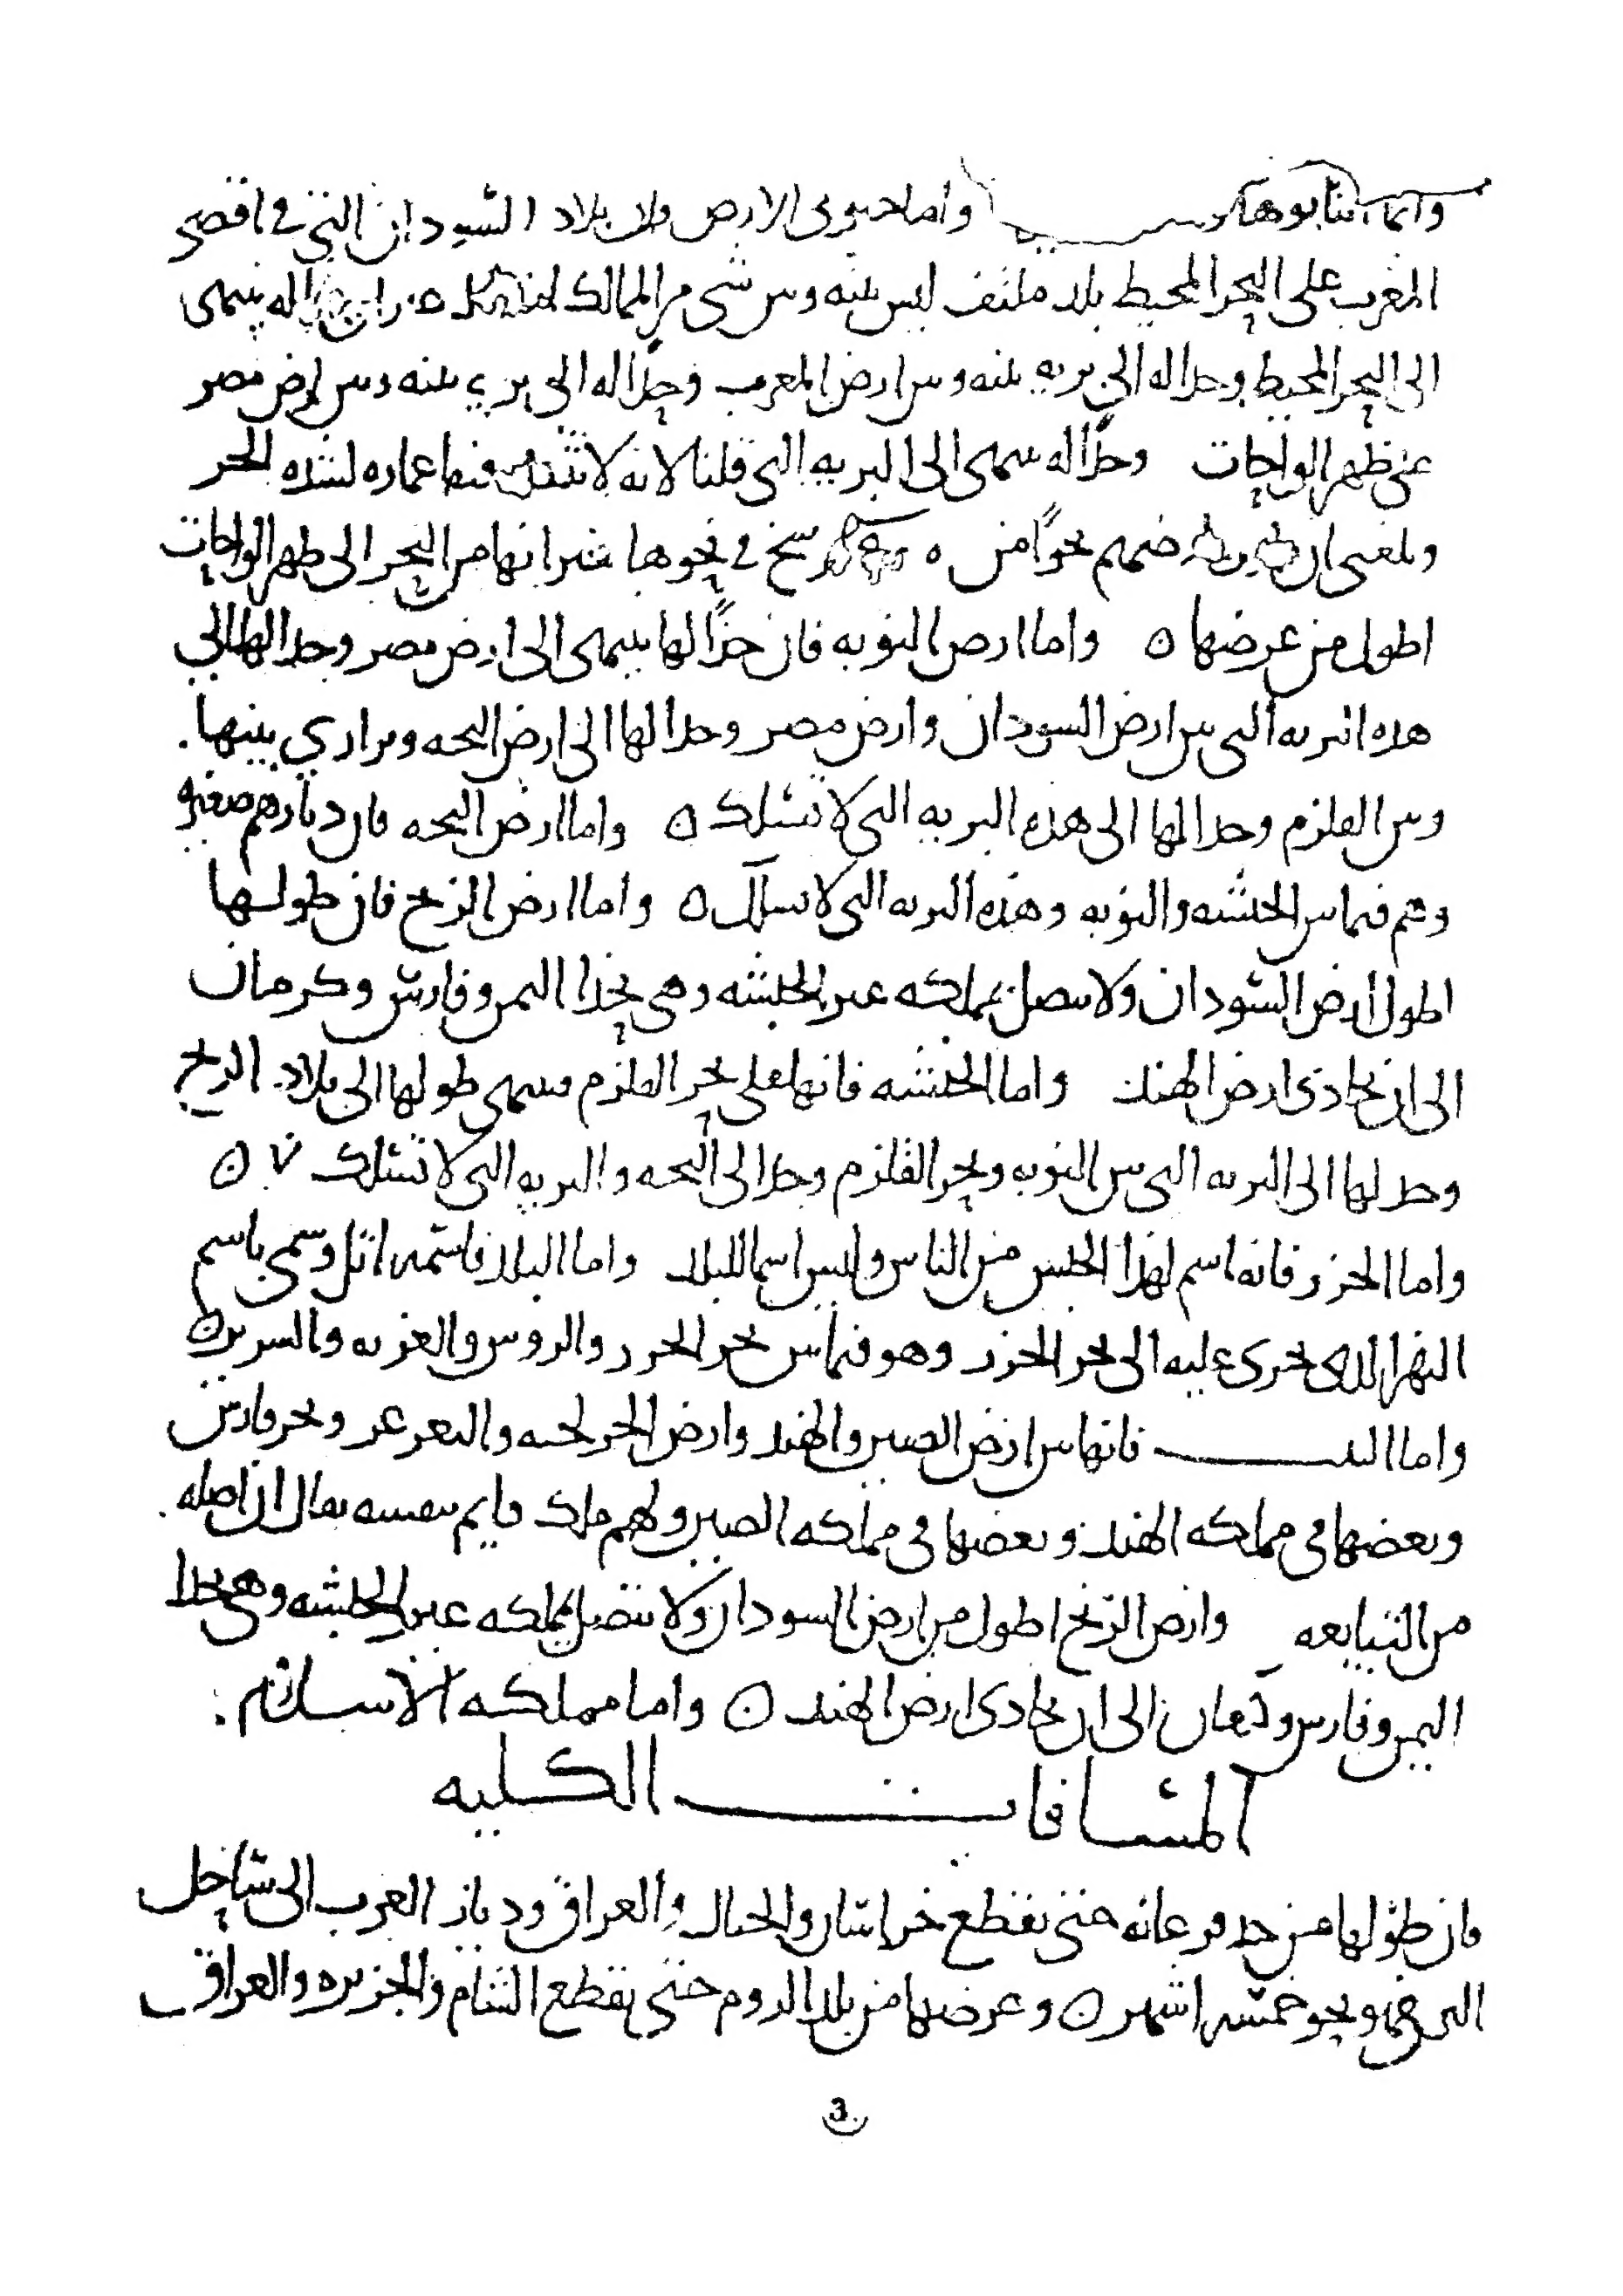 واما جنوبى الارض فان بلاد السودان التى فى اقصى
المغرب على البحر المحيط بلد ملتف ليس بينه وبين شى من الممالك له ينتهى
الى البحر المحيط وحدا له الى بريه بينه وبين ارض المغرب وحدا له الى بريه بينه وبين ارض مصر
على ظهر الواحات وحدا له ينتهى الى البريه التى قلنا لانه لا فيها عماره لشده الحر
وبلغنى ان نحوا من فى نحوها غير انها من البحر الى ظهر الواحات
اطول من عرضها ه واما ارض النوبه فان حدا لها ينتهى الى ارض مصر وحدا لها الى
هذه البريه التى بين ارض السودان وارض مصر وحدا لها الى ارض البجه وبرارى بينها
وبين القلزم وحدا لها الى هذه البريه التى لا تسلك ه واما ارض البجه فان ديارهم صغيره
وهم فيما بين الحبشه والنوبه وهذه البريه التى لا تسلك ه واما ارض الزنج فان طولها
اطول ارض السودان ولا تتصل بمملكه غير الحبشه وهى بحذا اليمن وفارس وكرمان
الى ان تحاذى ارض الهند واما الحبشه فانها على بحر القلزم ينتهى طولها الى بلاد الزنج
وحد لها الى البريه التى بين النوبه وبحر القلزم وحدا الى البجه والبريه التى لا تسلك ه
واما الخزر فانه اسم لهذا الجنس من الناس وليس اسما للبلد واما البلد فاسمه اتل وسمى باسم
النهر الذى يجرى عليه الى بحر الخزر وهو فيما بين بحر الخزر والروس والغزيه والسرير ه
واما التبت فانها بين ارض الصين والهند وارض الخرلخيه والتغرغز وبحر فارس
وبعضها فى مملكه الهند وبعضها فى مملكه الصين ولهم ملك قايم بنفسه يقال ان اصله
من التبابعه وارض الزنج اطول من ارض السودان ولا تتصل بمملكه غير الحبشه وهى بحذا
اليمن وفارس وكرمان الى ان تحاذى ارض الهند ه واما مملكه الاسلام
المسافات الكليه
فان طولها من حد فرغانه حتى يقطع خراسان والجبال والعراق وديار العرب الى ساحل
اليمن فهو نحو خمسه اشهر ه وعرضها من بلد الروم حتى يقطع الشام والجزيره والعراق
3